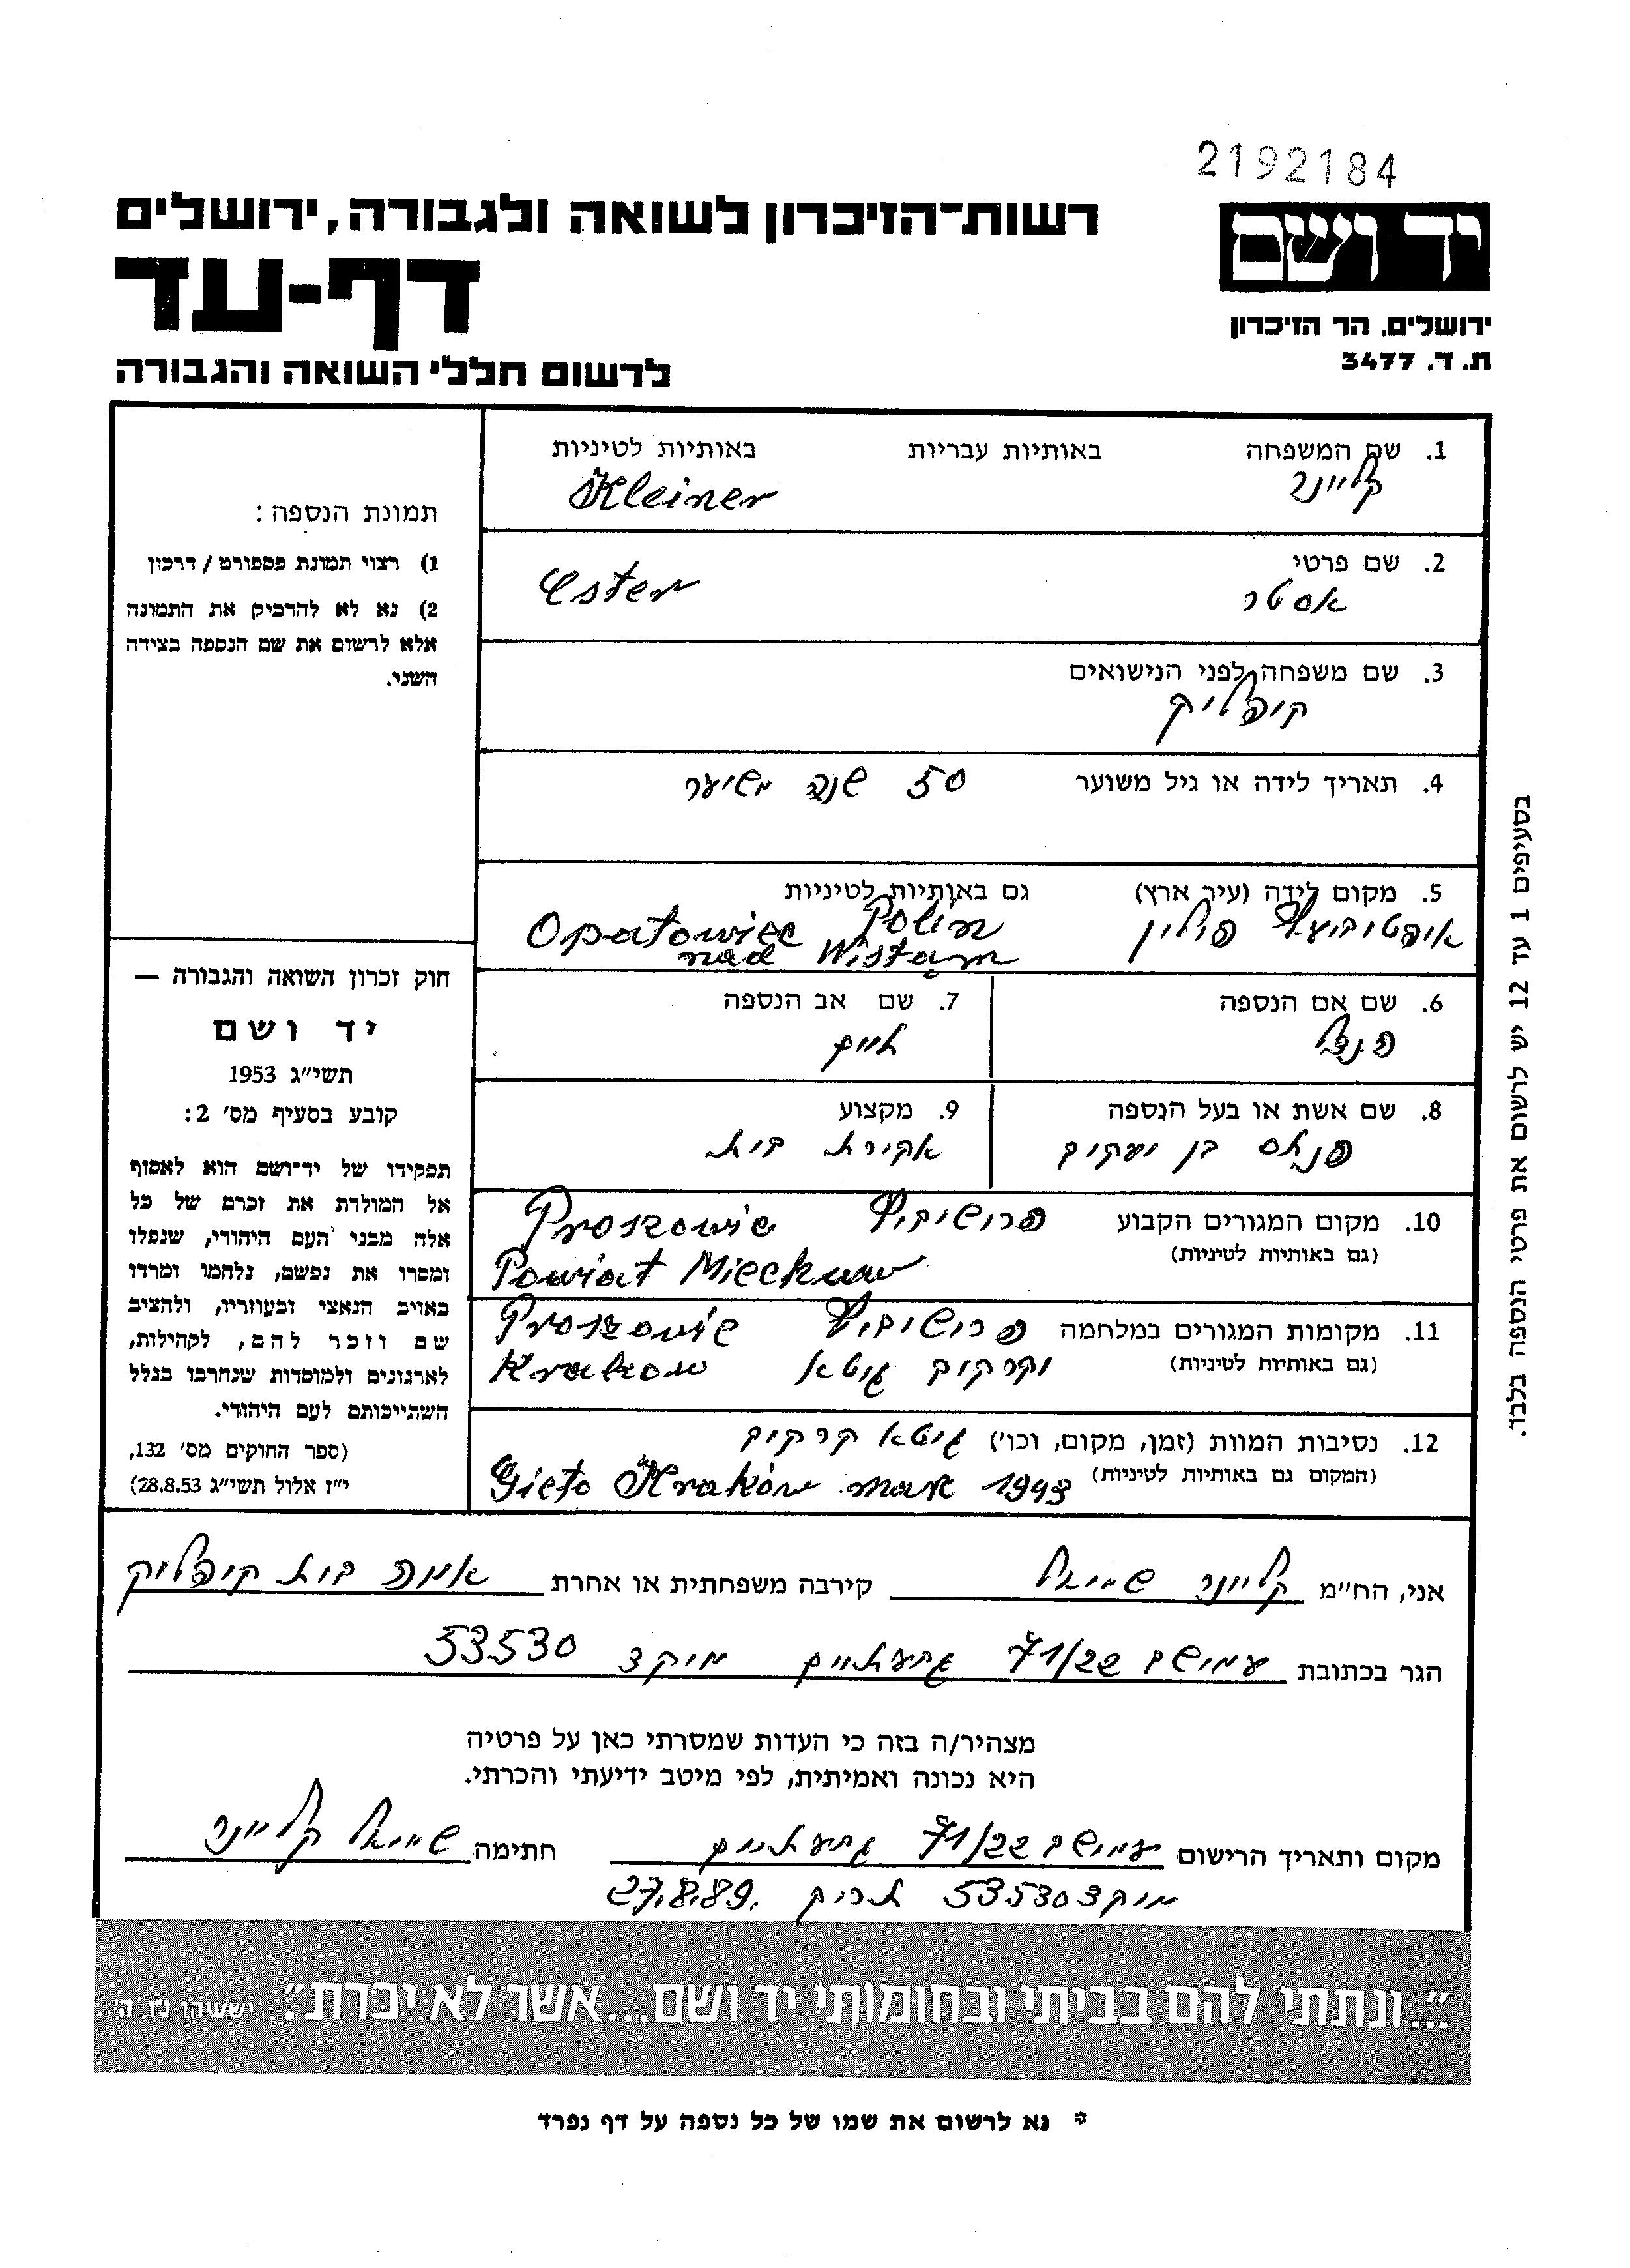 2192184
יד ושם
ירושלים, הר הזיכרון
ת. ד. 3477
רשות־הזיכרון לשואה ולגבורה, ירושלים
דף-עד
לרשום חללי השואה והגבורה
1. שם המשפחה באותיות עבריות באותיות לטיניות
קליינר Kleiner
2. שם פרטי
אסטר Ester
3. שם משפחה לפני הנישואים
קיפליק
4. תאריך לידה או גיל משוער 50 שנה משוער
5. מקום לידה (עיר ארץ) גם באותיות לטיניות
פולין Opatowiec Polin
nad Wisłam
6. שם אם הנספה
הנצל
7. שם אב הנספה
חיים
8. שם אשת או בעל הנספה
פנחס בן יעקוב
9. מקצוע
אקירת בית
10. מקום המגורים הקבוע פרושוביץ Proszowie
(גם באותיות לטיניות) Powiat Miechuw
11. מקומות המגורים במלחמה פרושוביץ Proszowie
(גם באותיות לטיניות) וקרקוב גיטא Krakow
12. נסיבות המוות (זמן, מקום, וכו') גיטא קרקוב
(המקום גם באותיות לטיניות) Gieto Kraków mark 1943
תמונת הנספה:
1) רצוי תמונת פספורט / דרכון
2) נא לא להדביק את התמונה
אלא לרשום את שם הנספה בצידה
השני.
חוק זכרון השואה והגבורה —
יד ושם
תשי״ג 1953
קובע בסעיף מס׳ 2:
תפקידו של יד־ושם הוא לאסוף
אל המולדת את זכרם של כל
אלה מבני העם היהודי, שנפלו
ומסרו את נפשם, נלחמו ומרדו
באויב הנאצי ובעוזריו, ולהציב
שם וזכר להם, לקהילות,
לארגונים ולמוסדות שנחרבו בגלל
השתייכותם לעם היהודי.
(ספר החוקים מס׳ 132,
י״ז אלול תשי״ג 28.8.53)
בסעיפים 1 עד 12 יש לרשום את פרטי הנספה בלבד.
אני, הח״מ קליינר שמיאל קירבה משפחתית או אחרת אימה בית קיפליק
הגר בכתובת עמישב 71/22 גבעתיים מיקד 53530
מצהיר/ה בזה כי העדות שמסרתי כאן על פרטיה
היא נכונה ואמיתית, לפי מיטב ידיעתי והכרתי.
מקום ותאריך הרישום עמישב 71/22 גבעתיים חתימה שמיאל קליינר
מיקד 53530 תריך 27.8.89.
"...ונתתי להם בביתי ובחומותי יד ושם...אשר לא יכרת". ישעיהו נ״ו, ה׳
* נא לרשום את שמו של כל נספה על דף נפרד